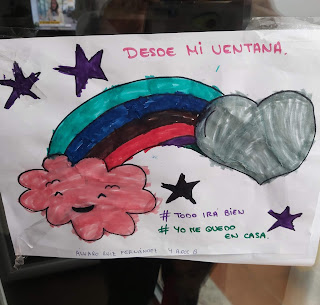 DESDE MI VENTANA.
# TODO IRA BIEN
# YO ME QUEDO
EN CASA.
ALVARO RUIZ FERNÁNDEZ 4 AÑOS